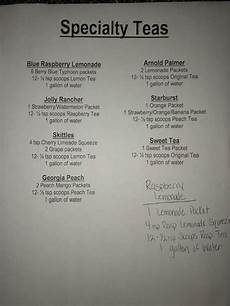 Specialty Teas
Blue Raspberry Lemonade
6 Berry Blue Typhoon packets
12- ½ tsp scoops Lemon Tea
1 gallon of water
Jolly Rancher
1 Strawberry/Watermelon Packet
12- ½ tsp scoops Lemon Tea
1 gallon of water
Skittles
4 tsp Cherry Limeade Squeeze
2 Grape packets
12- ½ tsp scoops Lemon Tea
1 gallon of water
Georgia Peach
2 Peach Mango Packets
12- ½ tsp scoops Lemon Tea
1 gallon of water
Arnold Palmer
2 Lemonade Packets
12- ½ tsp scoops Original Tea
1 gallon of water
Starburst
1 Orange Packet
1 Strawberry/Orange/Banana Packet
12- ½ tsp scoops Lemon Tea
1 gallon of water
Sweet Tea
1 Sweet Tea Packet
12- ½ tsp scoops Original Tea
1 gallon of water
Raspberry
Lemonade
1 Lemonade Packet
4 tsp Rasp Lemonade Squeeze
12- ½ tsp Scoops Rasp Tea
1 gallon of Water